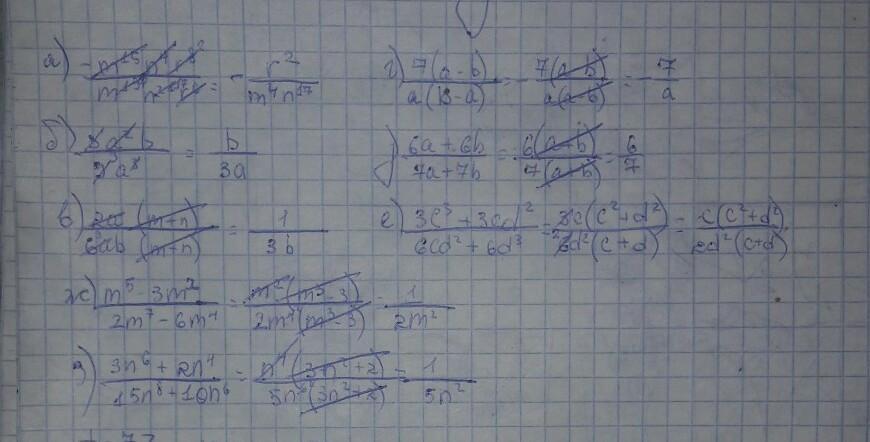 г) 7(a-b)/a(b-a) = -7(a-b)/a(a-b) = -7/a
б) 3a²b/9a³ = b/3a
д) 6a+6b/7a+7b = 6(a+b)/7(a+b) = 6/7
в) 2a(m+n)/6ab(m+n) = 1/3b
е) 3c³+3cd²/6cd²+6d³ = 3c(c²+d²)/6d²(c+d) = c(c²+d²)/2d²(c+d)
ж) m⁵-3m²/2m⁷-6m⁴ = m²(m³-3)/2m⁴(m³-3) = 1/2m²
з) 3n⁶+2n⁴/15n⁸+10n⁶ = n⁴(3n²+2)/5n⁶(3n²+2) = 1/5n²